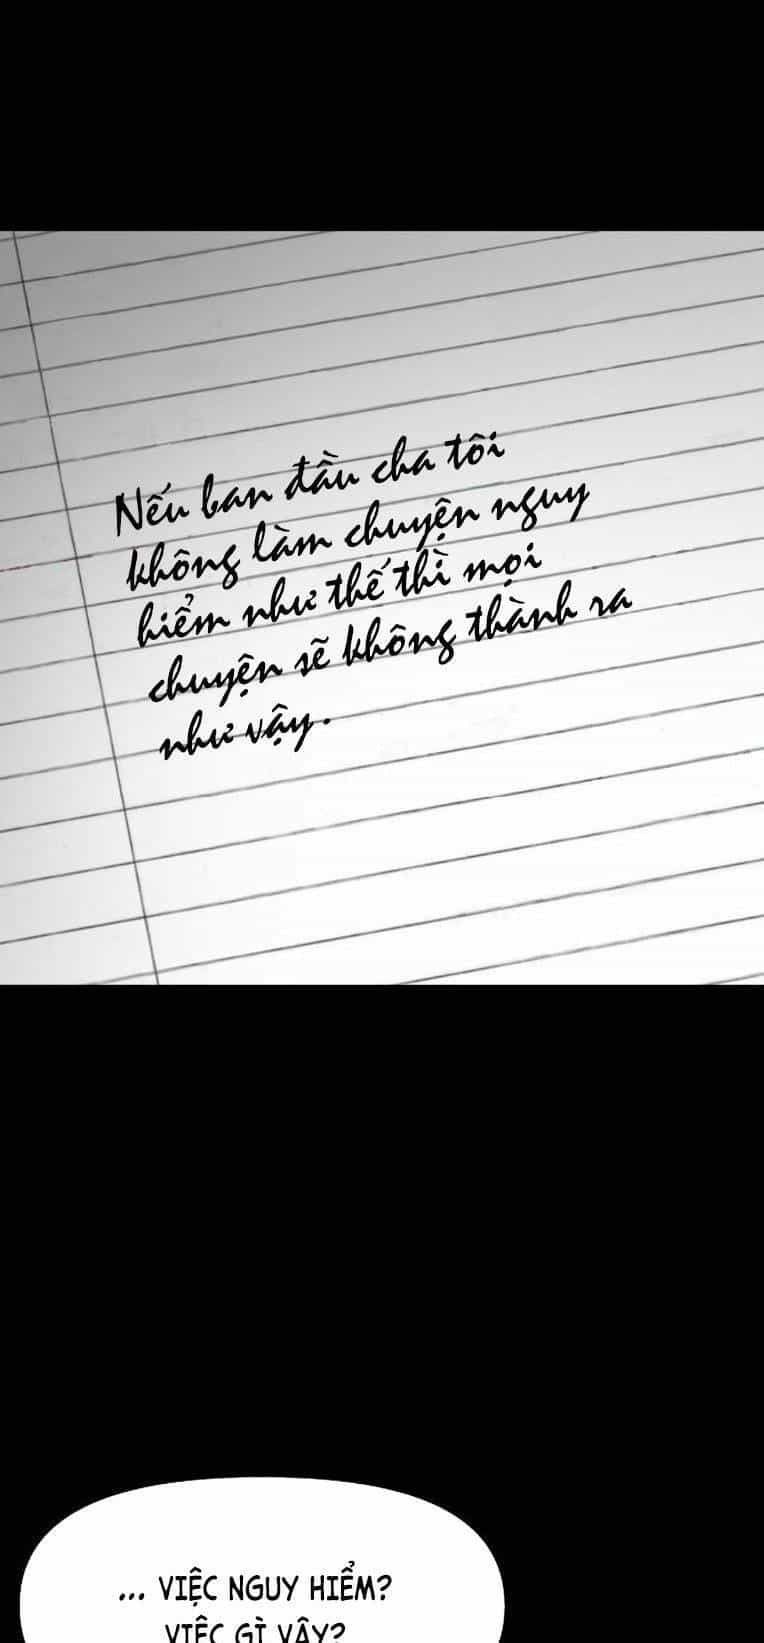 Nếu ban đầu cha tôi
không làm chuyện nguy
hiểm như thế thì mọi
chuyện sẽ không thành ra
như vậy.
... VIỆC NGUY HIỂM?
VIỆC GÌ VẬY?